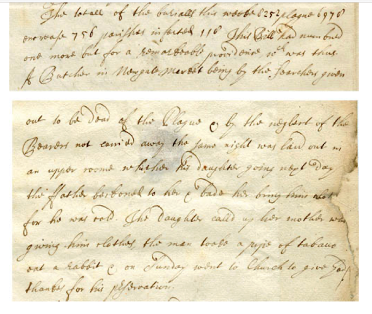 The totall of the burialls this weeke 8252 plague 6978
increase 756 parishes infected 118 This Bill has numbred
one more but for a remarkeable providence wch was this
A Butcher in Newgate Market being by the searchers given
out to be dead of the Plague & by the neglect of the
Bearers not carried away the same night was laid out in
an upper roome whither his daughter going next day
the ffather beckoned to her & bade her bring him
for he was cold The Daughter called up her mother who
giving him clothes the man tooke a pipe of tabaco
eat a rabbit & on Sunday went to Church to give God
thanks for his preservation